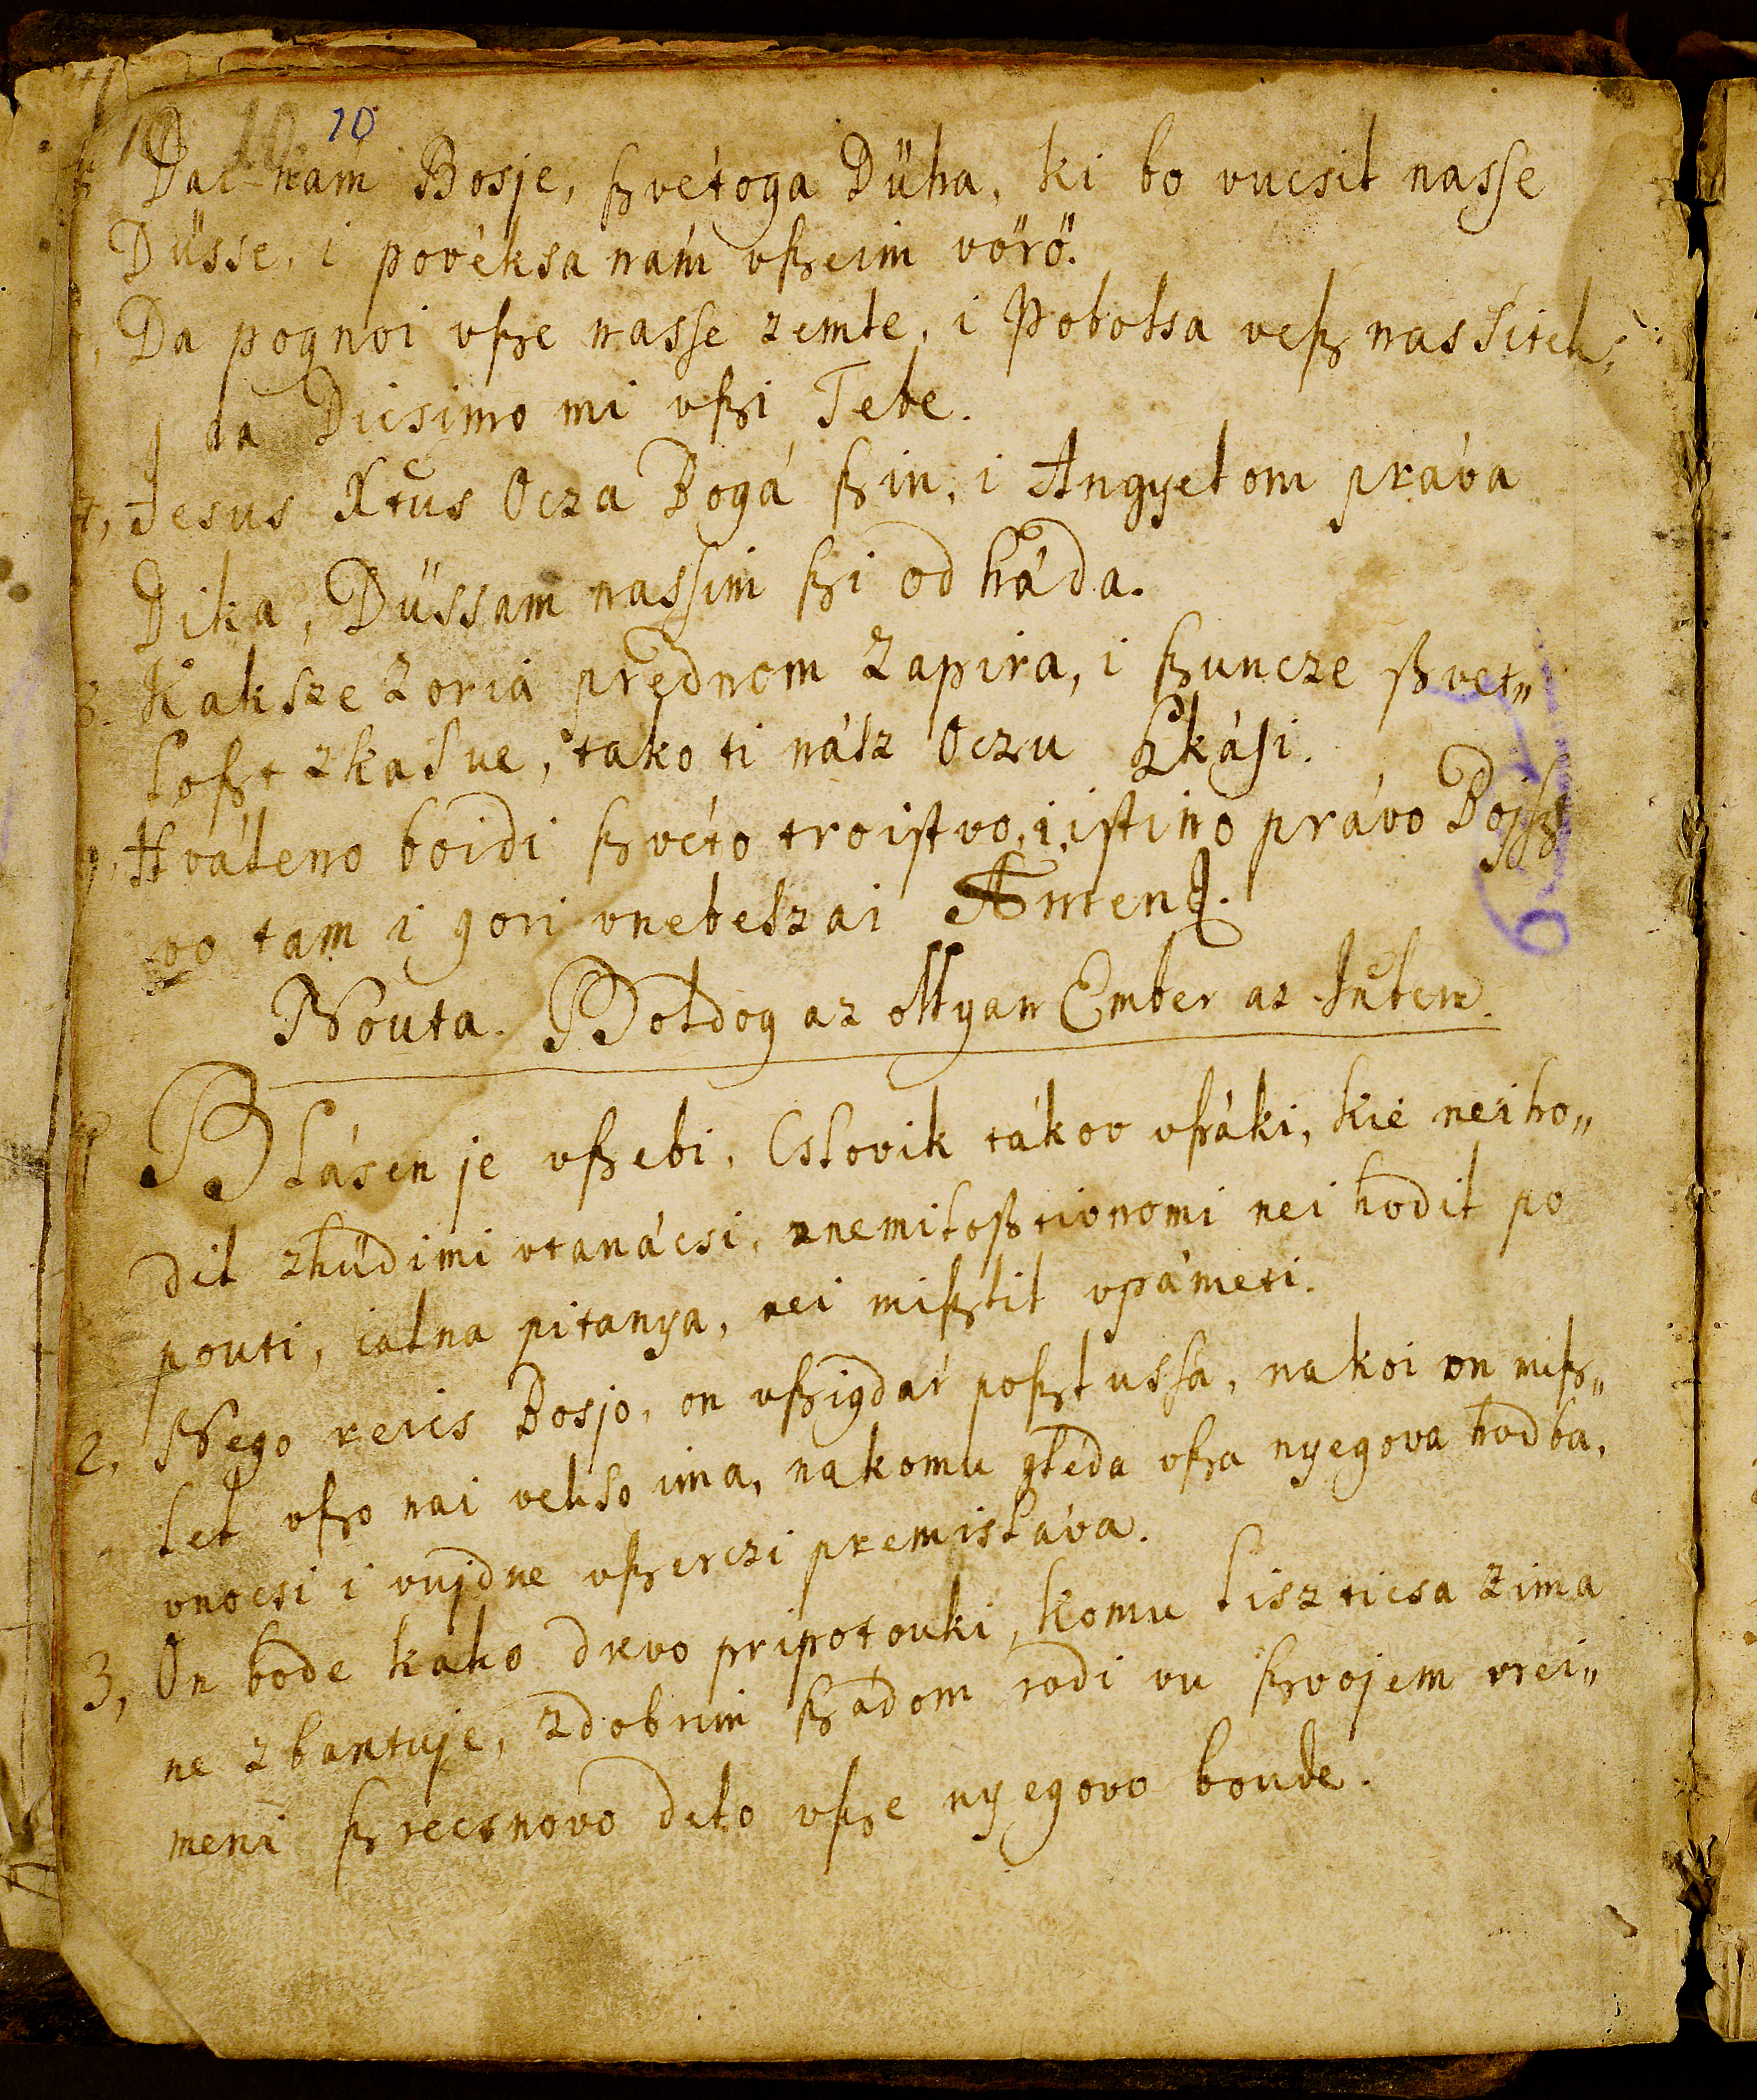 10
Dai nám Bosje, ſzvétoga Dűha, ki bo vucsil nasſe
Düsse, i povéksa nám vſzeim vörö.
Da pognoi vſze nasſe zemle, i Pobolsa veſz nas Sitek,
I da Dicsimo mi vſzi Tebe.
7, Jesus Xtus Ocza Bogá ſzin, i Angyelom práva
Dika, Düssam nasſim ſzi od háda.
8. Kaksze Zoria prednom Zapira, i ſzuncze ſzvet„
loſzt zkasue, tako ti násZ Oczu Zkási.
9, Hváleno boidi ſzvéto troiſtvo, i iſtino právo Boiſz
vo tam i gori vnebeszai Amen.
Nouta. Boldog az ollyan Ember az Iſtem.
1 Blásen je vſzebi, Cslovik tákov vſzáki, kié nei ho„
dil zhüdimi vtanácsi, nemiloſztivnomi nei hodil po
pouti, ialna pitanya, nei miſzlil vpámeti.
2, Nego reics Bosjo, on vſzigdár poſzlusſa, na koi on miſz„
lel vſzo nai vekso ima, nakomu gléda vſza nyegova hodba,
vnocsi i vujdne vſzerczi premisláva.
3, On bode kako drvo pripotouki, komu liszticsa zima
ne zbantuje, zdobrim ſzádom rodi vu ſzvojem vrei„
meni ſzrecsnovo delo vſze nyegovo boude.